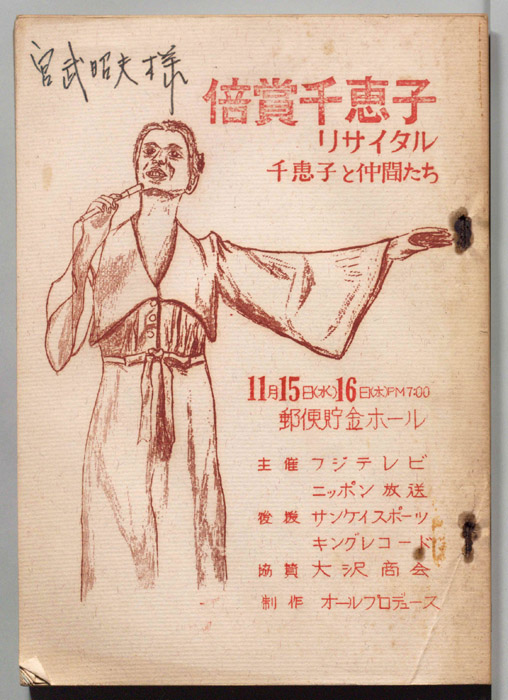 宮武昭夫様
倍賞千恵子
リサイタル
千恵子と仲間たち
11月15日(水)16日(木)PM7:00
郵便貯金ホール
主催 フジテレビ
ニッポン放送
後援 サンケイスポーツ
キングレコード
協賛 大沢商会
制作 オールプロデュース